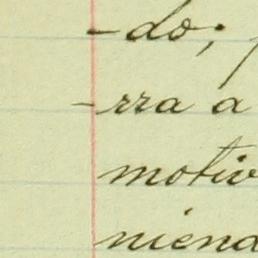 -do;
-rra a
motiv
niend